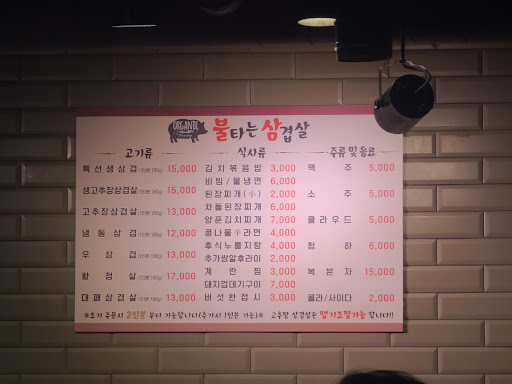 ORGANIC 불타는 삼겹살
고기류
특선생삼겹 (1인분 180g) 15,000
생고추장삼겹살 (1인분 180g) 15,000
고추장삼겹살 (1인분 180g) 13,000
냉동삼겹 (1인분 180g) 12,000
우삼겹 (1인분 180g) 13,000
항정살 (1인분 180g) 17,000
대패삼겹살 (1인분 180g) 13,000
식사류
김치볶음밥 3,000
비빔/물냉면 6,000
된장찌개(小) 2,000
차돌된장찌개 6,000
양푼김치찌개 7,000
콩나물라면 4,000
후식누룽지탕 4,000
추가쌍알후라이 2,000
계란찜 3,000
돼지껍데기구이 7,000
버섯한접시 3,000
주류 및 음료
맥주 5,000
소주 5,000
클라우드 5,000
청하 6,000
복분자 15,000
콜라/사이다 2,000
※초기 주문시 2인분 부터 가능합니다(추가시 1인분 가능)※ 고추장 삼겹살은 맵기조절가능 합니다!!